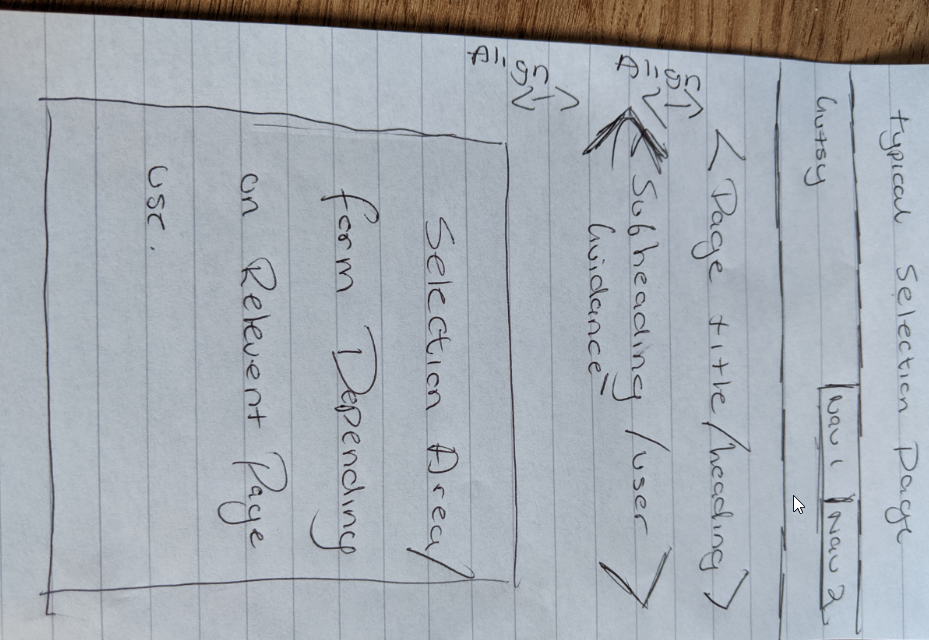 Typical Selection Page
Gutsy
Nav 1
Nav 2
<Page title/heading>
Align
<Subheading/user
Guidance>
Align
Selection Area/
form Depending
on Relevent Page
use.